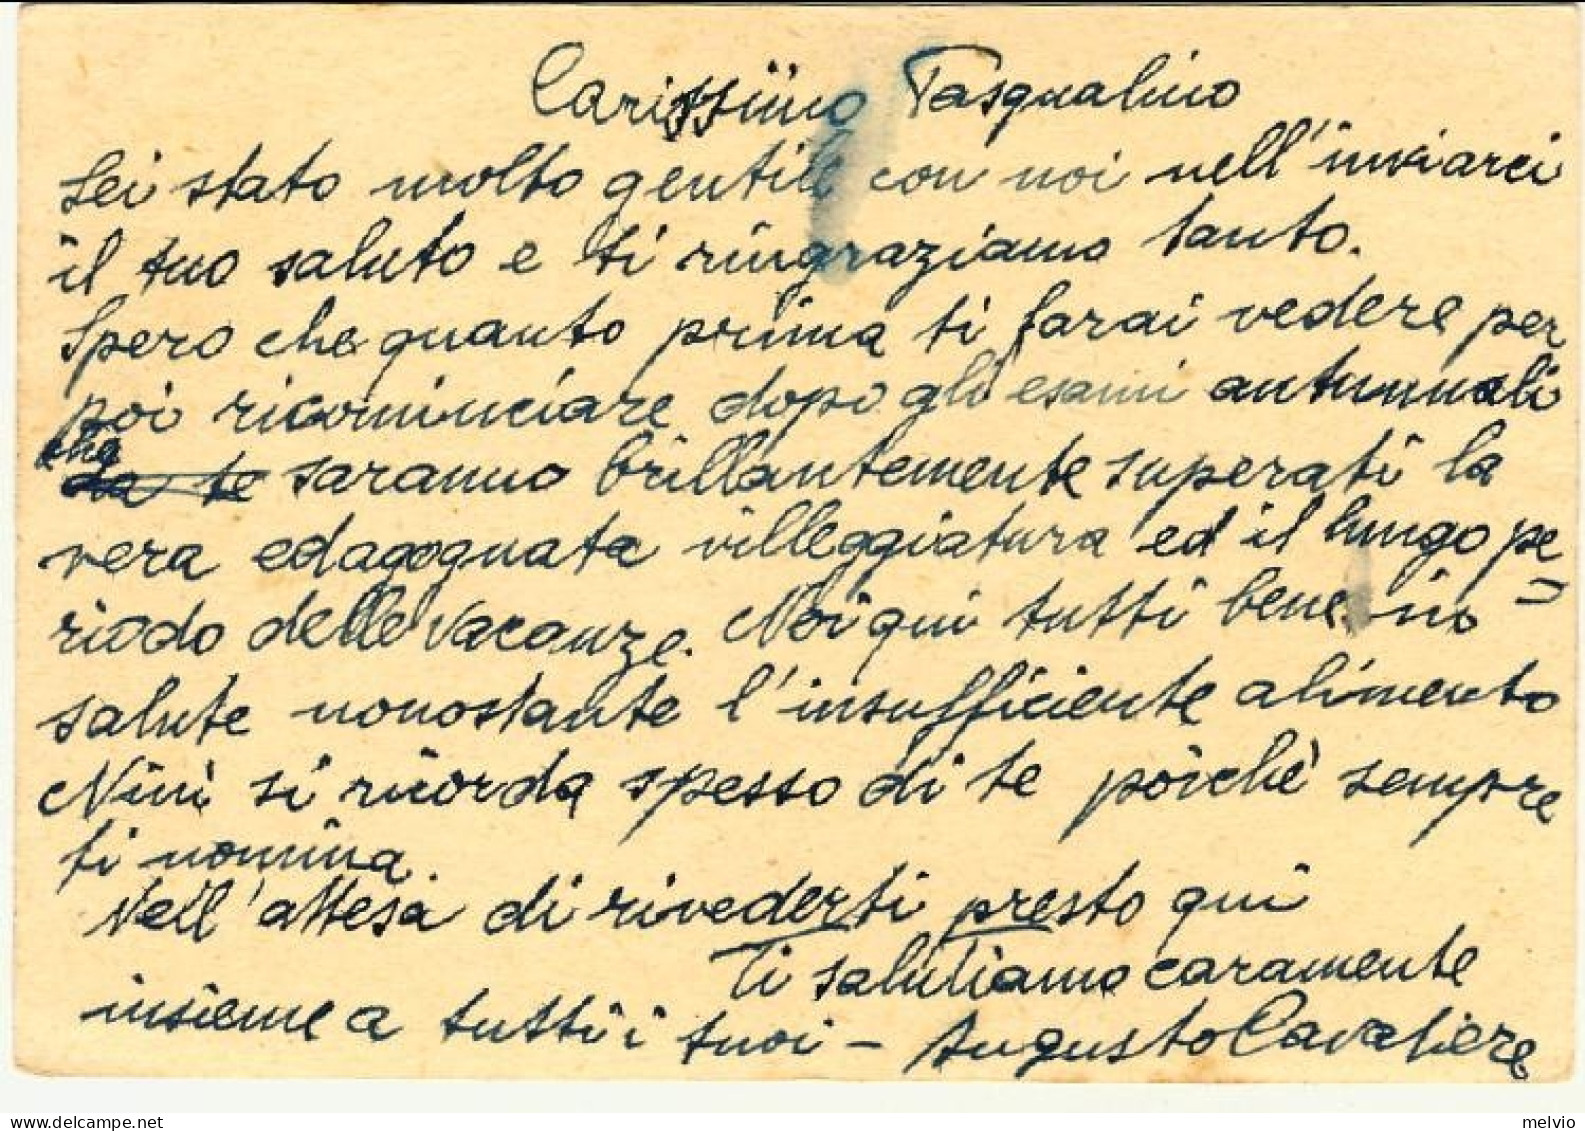 Carissimo Pasqualino
Sei stato molto gentile con noi nell'inviarci
il tuo saluto e ti ringraziamo tanto.
Spero che quanto prima ti farai vedere per
poi ricominciare dopo gli esami autunnali
che saranno brillantemente superati la
vera edagognata villeggiatura ed il lungo pe=
riodo delle vacanze. Noi qui tutti bene in
salute nonostante l'insufficiente alimento
Ninì si ricorda spesso di te poichè sempre
ti nomina.
Nell'attesa di rivederti presto qui
Ti salutiamo caramente
insieme a tutti i tuoi - Augusto Cavaliere
www.delcampe.net
melvio